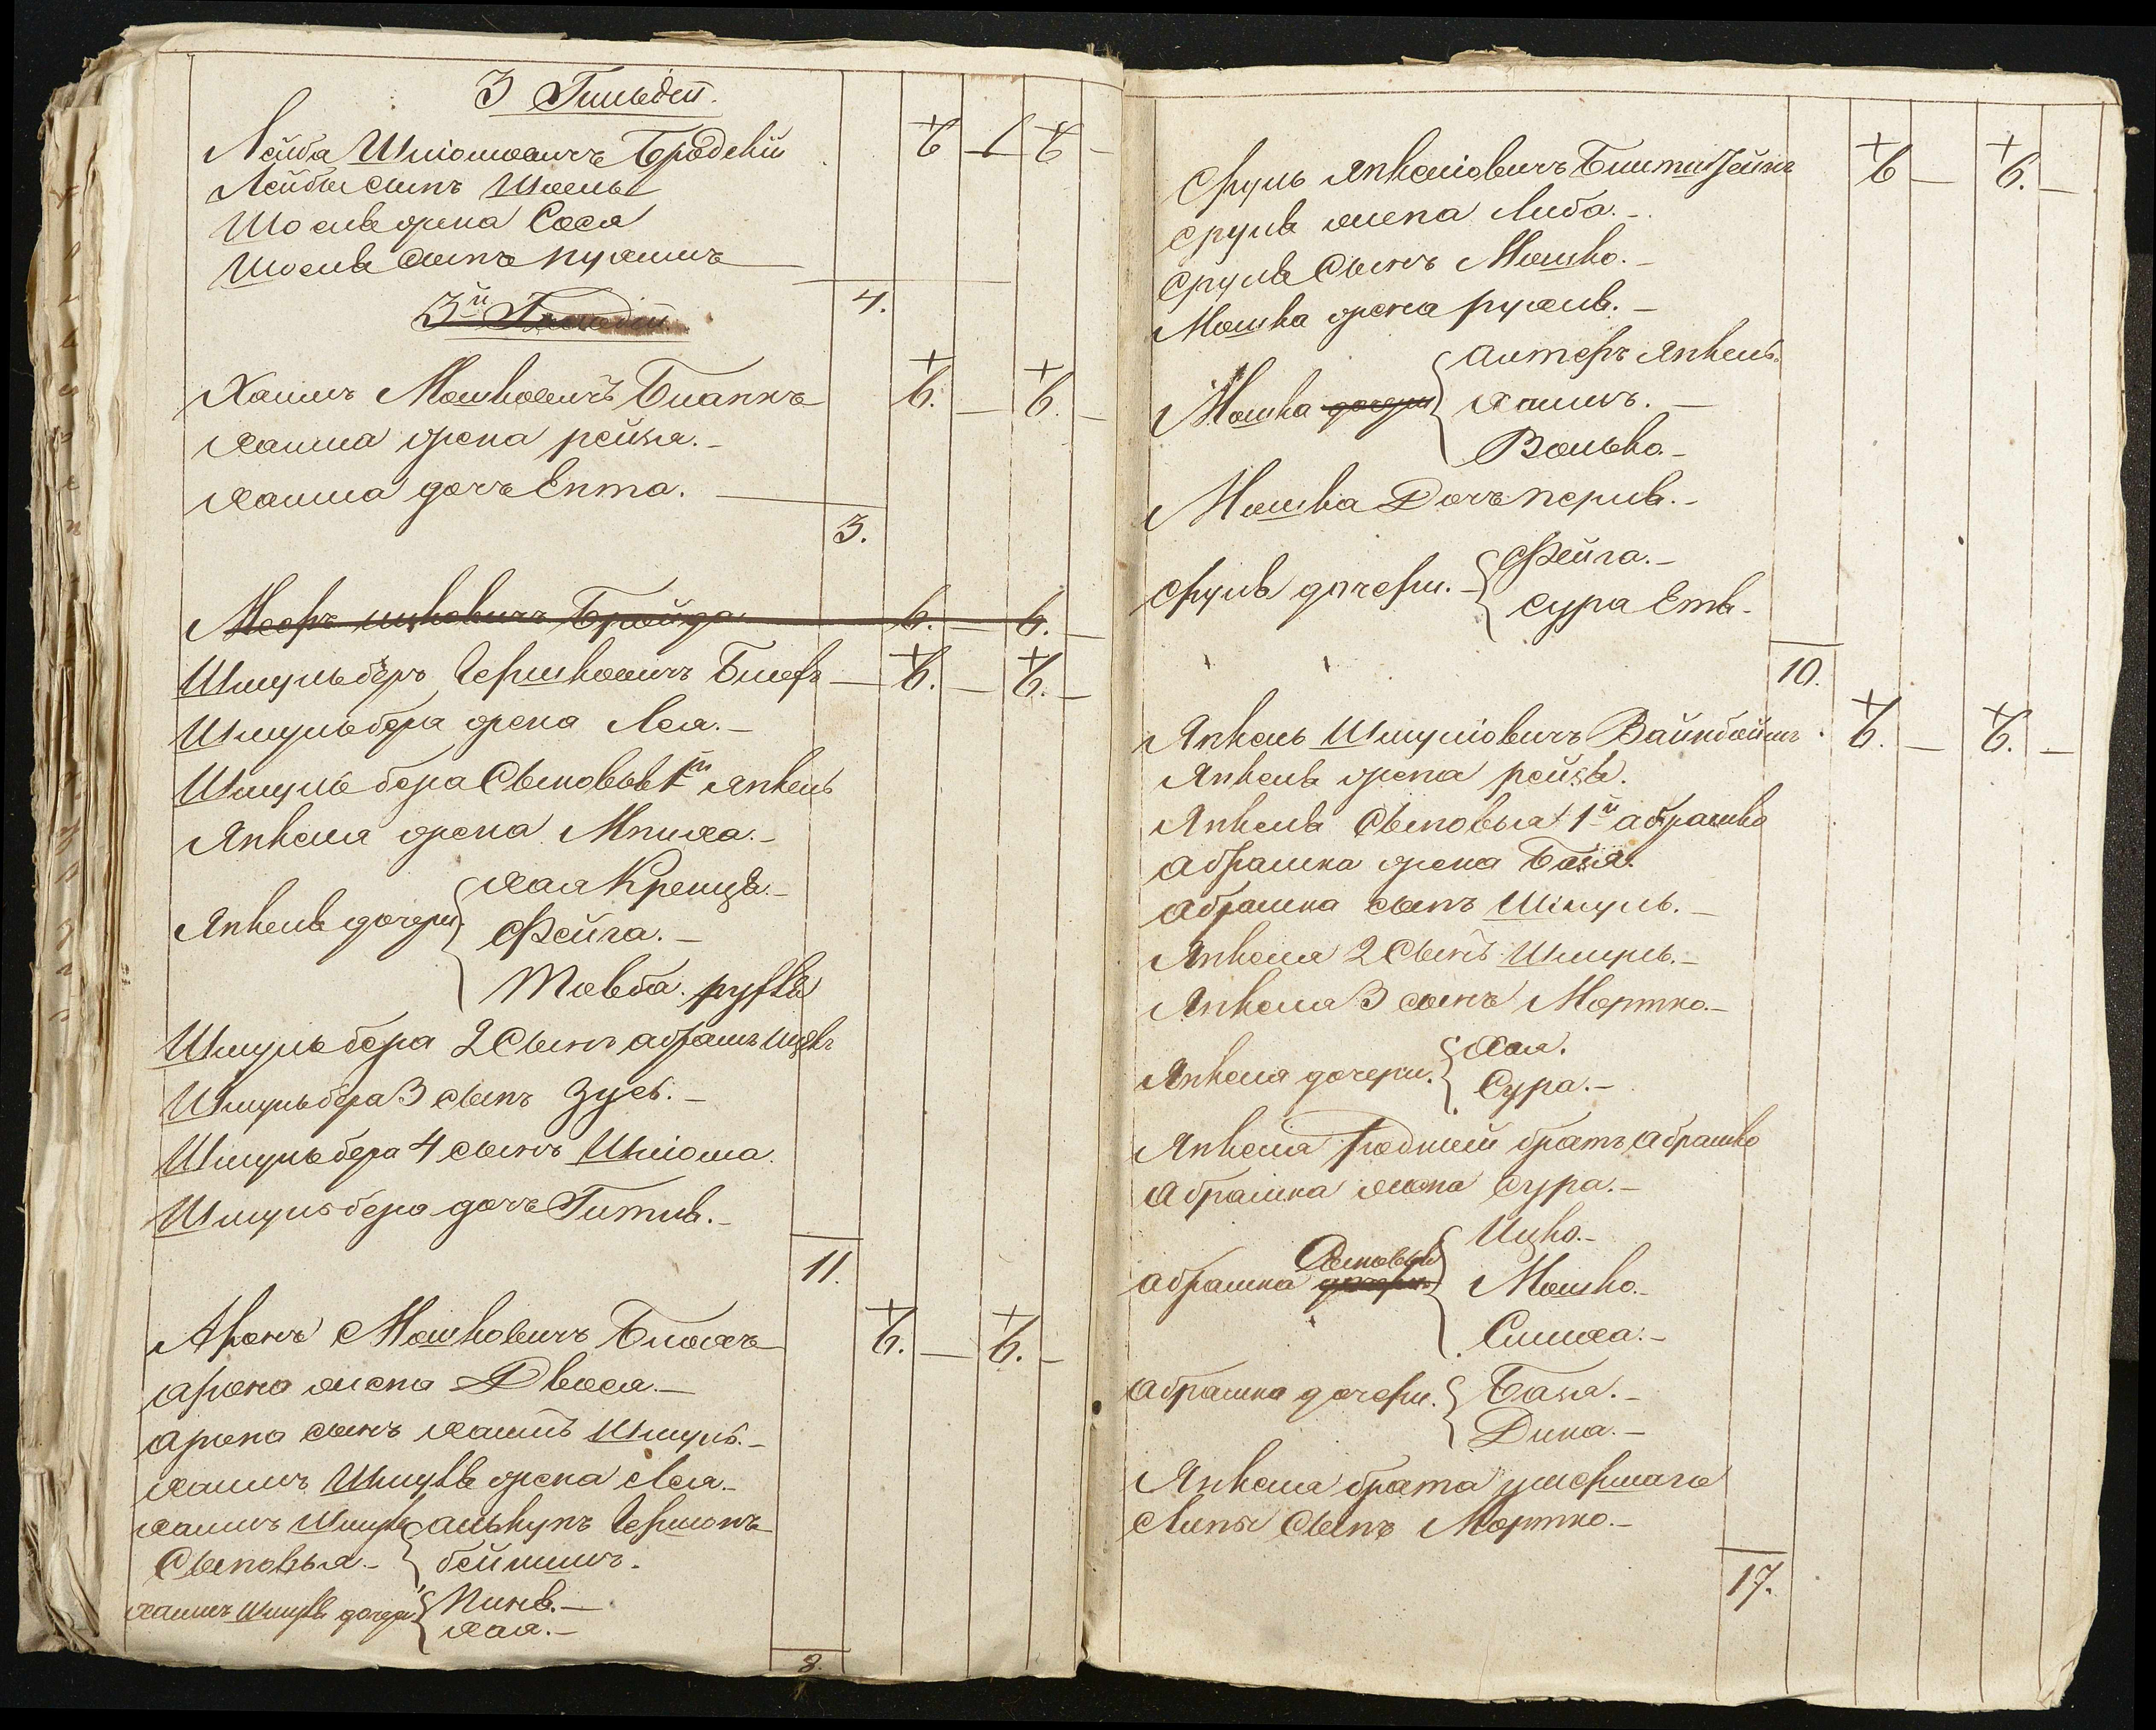 3 Гильдіи.
Лейба Шліомовичъ Бродскій 6 1 6
Лейбы сынъ Шоель
Шоеля жена Сося
Шоеля сынъ Нухимъ
4.
3й Гильдіи
Хаимъ Мошковичъ Бланкъ 6. — 6. —
Хаима жена Рейзя. —
Хаима дочь Ента.
3.
Мееръ Ицковичъ Бройда 6. — 6. —
Шмульберъ Гершковичъ — 6. — 6. —
Шмульбера жена Лея. —
Шмульбера Сыновья 1й Янкель
Янкеля жена —
Янкеля дочери { Хая Крейнця. —
Фейга. —
Товба.
Шмульбера 2 Сынъ Абрамъ Ицекъ
Шмульбера 3 сынъ Зусь. —
Шмульбера 4 сынъ Шліома.
Шмульбера дочь Гитля. —
11.
Аронъ Мошковичъ Блохъ 6. — 6. —
Арона жена Двося. —
Арона сынъ Хаимъ Шмуль. —
Хаимъ Шмуля жена Лея. —
Хаимъ Шмуля Сыновья. — { Алькунъ Гершонъ
Беймишъ.
Хаимъ Шмуля дочери { Пиня. —
Хая. —
8.
Сруль Янкеліовичъ 6 — 6. —
Сруля жена Либа. —
Сруля Сынъ Мошко. —
Мошка жена Рухля. —
Мошка дочери { Алтеръ Янкель.
Хаимъ. —
Волько. —
Мошка Дочь Перля. —
Сруля дочери. — { Фейга. —
Сура Етя. —
10.
Янкель Шмуліовичъ Вайнбоймъ. 6. — 6. —
Янкеля жена Рейзя.
Янкеля Сыновья 1й Абрашко
Абрашка жена Бася.
Абрашка сынъ Шмуль. —
Янкеля 2 Сынъ Шмуль. —
Янкеля 3 сынъ Мортко. —
Янкеля дочери. { Хая.
Сура. —
Янкеля Родный братъ Абрашко
Абрашка жена Сура. —
Абрашка дочери Сыновья { Ицко. —
Мошко. —
Симха. —
Абрашка дочери. { Бася. —
Дина. —
Янкеля брата умершаго
Липы Сынъ Мортко. —
17.